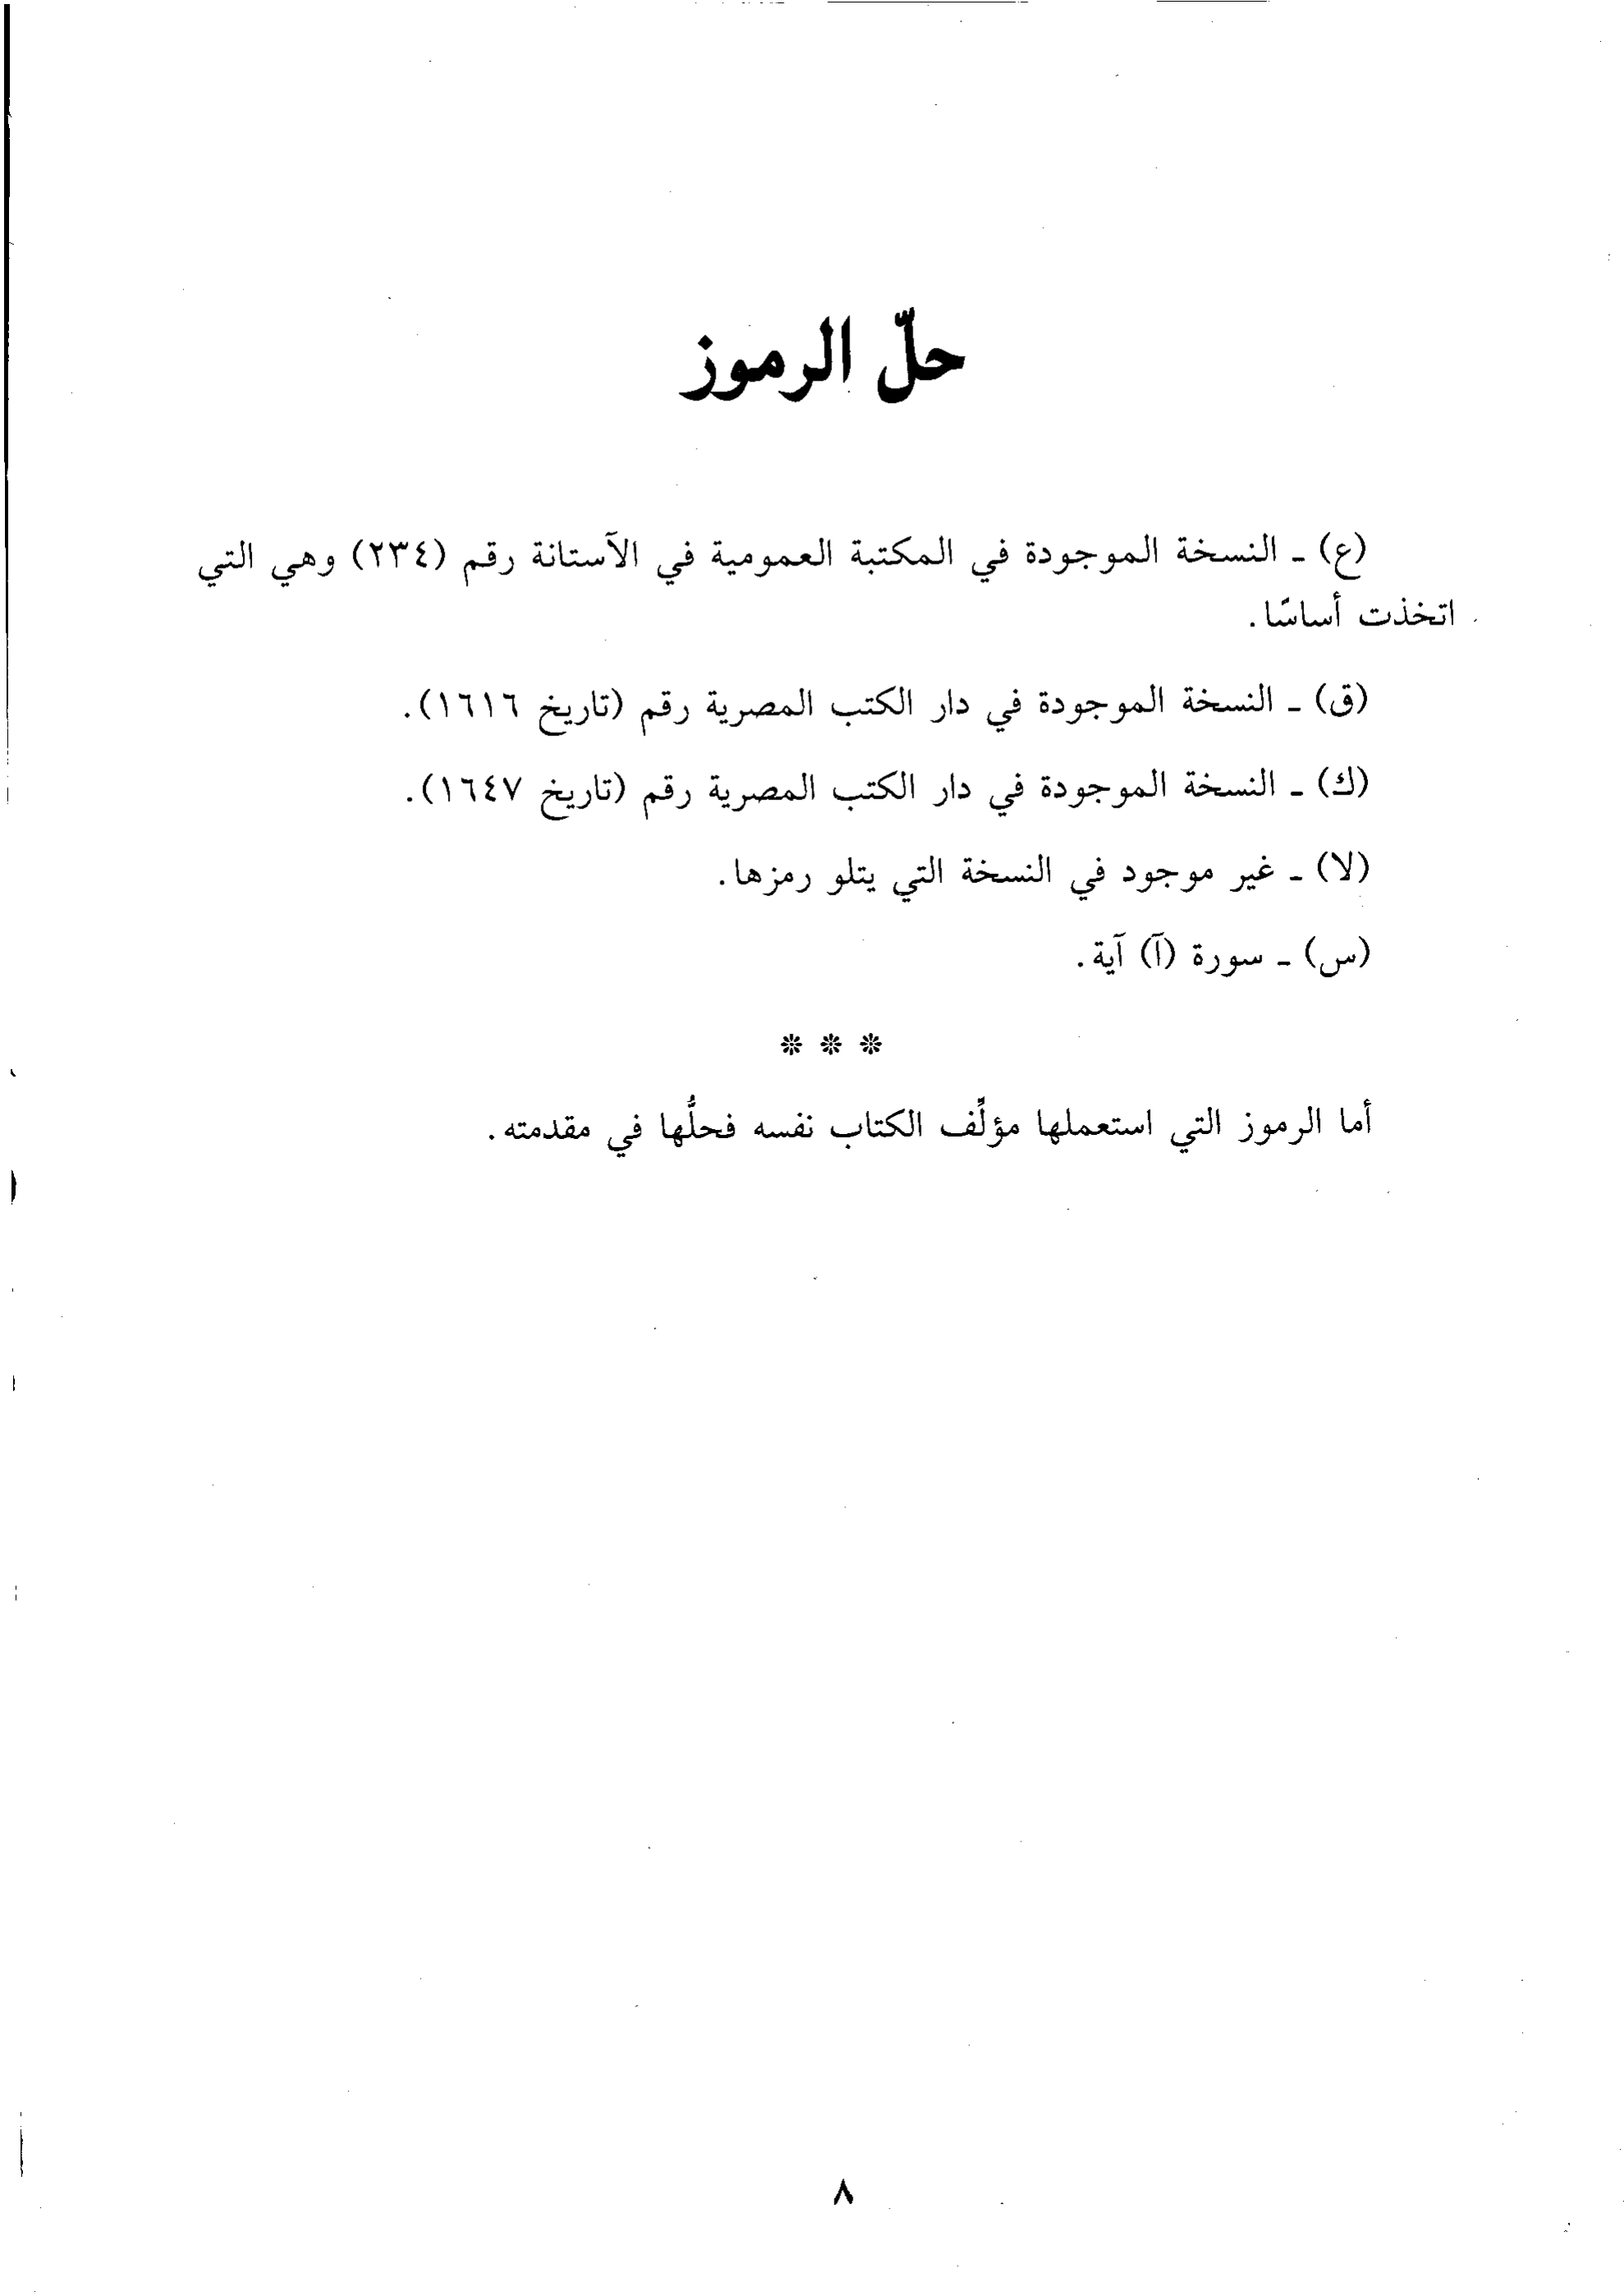 حلّ الرموز
(ع) ـ النسخة الموجودة في المكتبة العمومية في الآستانة رقم (٢٣٤) وهي التي
اتخذت أساسًا.
(ق) ـ النسخة الموجودة في دار الكتب المصرية رقم (تاريخ ١٦١٦).
(ك) ـ النسخة الموجودة في دار الكتب المصرية رقم (تاريخ ١٦٤٧).
(لا) ـ غير موجود في النسخة التي يتلو رمزها.
(س) ـ سورة (آ) آية.
* * *
أما الرموز التي استعملها مؤلِّف الكتاب نفسه فحلُّها في مقدمته.
٨